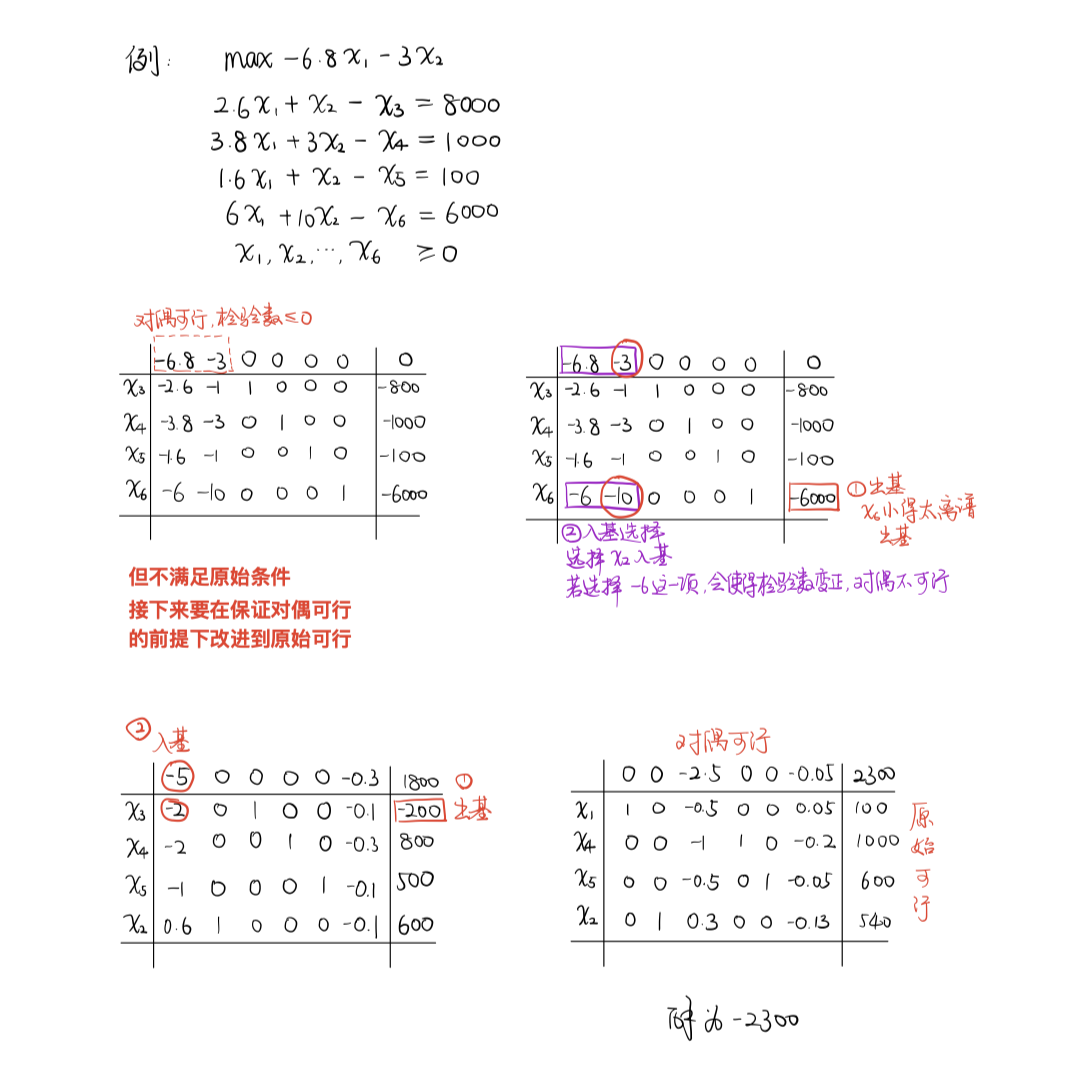 例: max -6.8x₁ - 3x₂
2.6x₁ + x₂ - x₃ = 8000
3.8x₁ + 3x₂ - x₄ = 1000
1.6x₁ + x₂ - x₅ = 100
6x₁ + 10x₂ - x₆ = 6000
x₁, x₂, ..., x₆ ≥ 0
对偶可行, 检验数 ≤ 0
-6.8 -3 0 0 0 0 0
x₃ -2.6 -1 1 0 0 0 -800
x₄ -3.8 -3 0 1 0 0 -1000
x₅ -1.6 -1 0 0 1 0 -100
x₆ -6 -10 0 0 0 1 -6000
但不满足原始条件
接下来要在保证对偶可行
的前提下改进到原始可行
-6.8 -3 0 0 0 0 0
x₃ -2.6 -1 1 0 0 0 -800
x₄ -3.8 -3 0 1 0 0 -1000
x₅ -1.6 -1 0 0 1 0 -100
x₆ -6 -10 0 0 0 1 -6000
①出基
x₆小得太离谱
出基
②入基选择
选择 x₂ 入基
若选择 -6这一项, 会使得检验数变正, 对偶不可行
② 入基
-5 0 0 0 0 -0.3 1800
x₃ -2 0 1 0 0 -0.1 -200
① 出基
x₄ -2 0 0 1 0 -0.3 800
x₅ -1 0 0 0 1 -0.1 500
x₂ 0.6 1 0 0 0 -0.1 600
对偶可行
0 0 -2.5 0 0 -0.05 2300
x₁ 1 0 -0.5 0 0 0.05 100
x₄ 0 0 -1 1 0 -0.2 1000
x₅ 0 0 -0.5 0 1 -0.05 600
x₂ 0 1 0.3 0 0 -0.13 540
原始可行
为 -2300